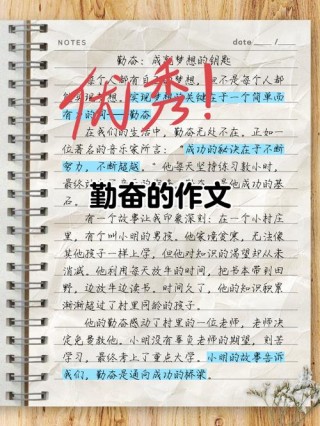 NOTES
date
勤奋：成就梦想的钥匙
每个人都有自己的梦想，但不是每个人都能
实现梦想。实现梦想的关键在于一个简单而
勤奋
优秀！
在我们的生活中，勤奋无处不在。正如一
位著名的音乐家所言："成功的秘诀在于不断
努力，不断超越。"他每天坚持练习数小时，
最终
是成功的基
石。
勤奋的作文
有一个故事让我印象深刻：在一个小村庄
里，有个叫小明的男孩，他家境贫寒，无法像
其他孩子一样上学，但他对知识的渴望却从未
消减。他利用每天放牛的时间，把书本带到田
野，边放牛边读书。时间久了，他的知识积累
渐渐超过了村里同龄的孩子。
他的勤奋感动了村里的一位老师，老师决
定免费教他。小明没有辜负老师的期望，刻苦
学习，最终考上了重点大学。小明的故事告诉
我们，勤奋是通向成功的桥梁。